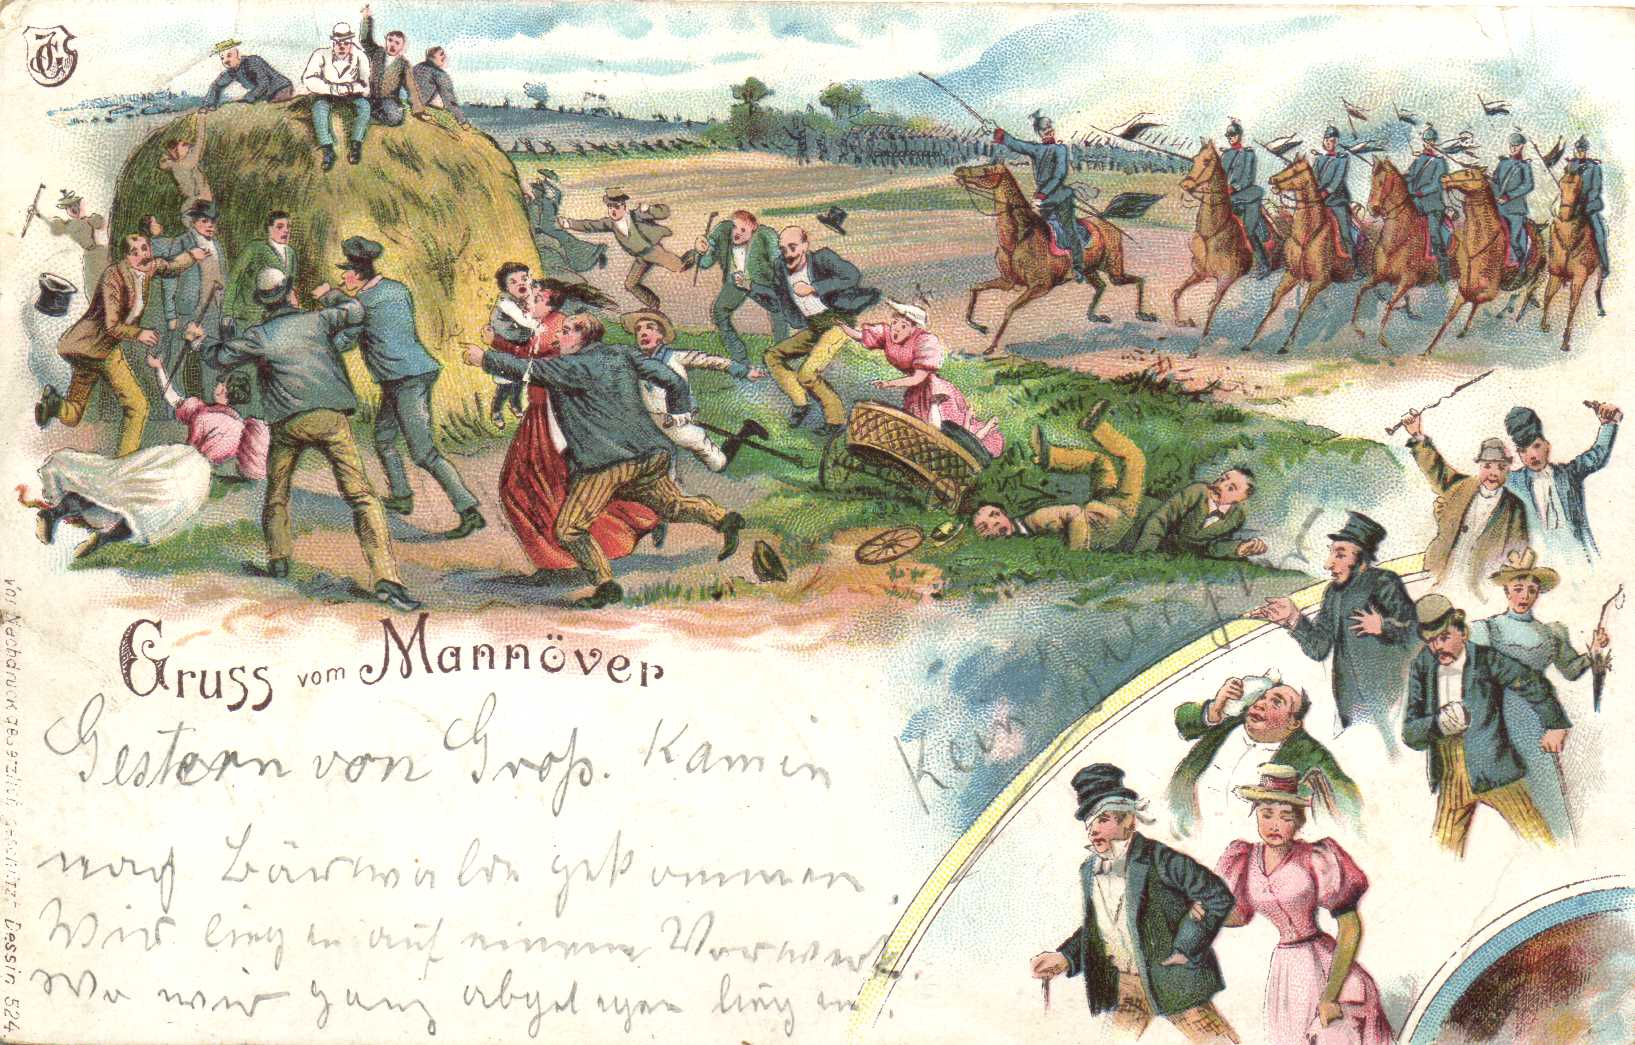 Gruss vom Mannöver
Gestern von Groß. Kamin
nach Bärwalde gekommen.
Wir liegen auf einem Vorwerk.
Wo wir ganz abgelegen liegen.
Kein
Vor Nachdruck gesetzlich geschützt Dessin 524